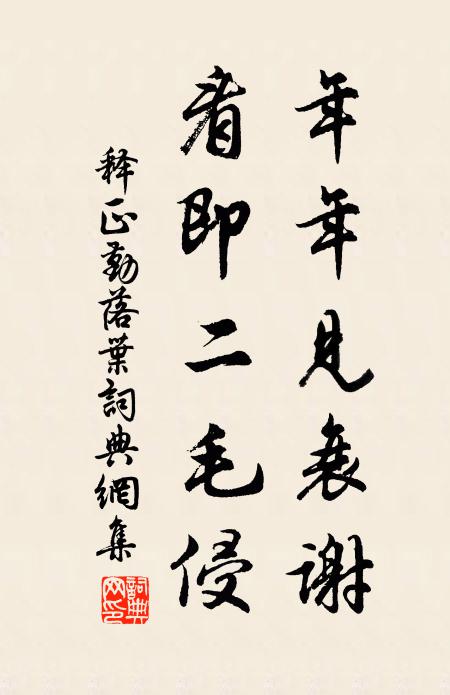 年年見衰谢
看即二毛侵
释正勤落葉詞典網集
詞典網印